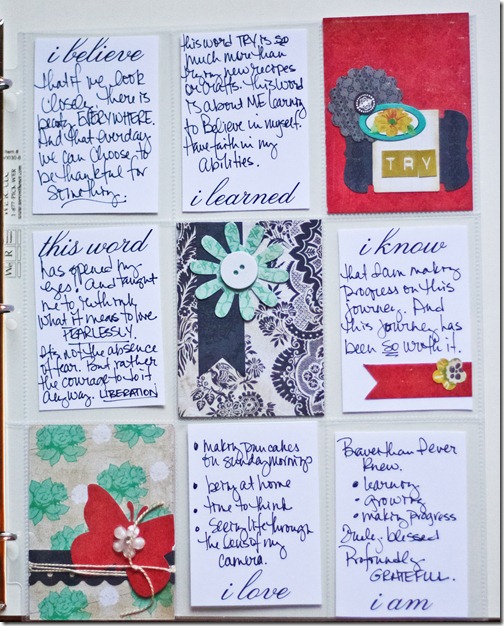 i believe
that if we look
closely. There is
beauty EVERYWHERE.
And that everyday
we can choose to
be thankful for
Something.
this word TRY is so
much more than
trying new recipes
or crafts. This word
is about ME learning
to Believe in myself.
Have faith in my
Abilities.
i learned
TRY
this word
has opened my
eyes. And taught
me to rethink
what it means to live
FEARLESSLY.
It's not the absence
of fear. But rather
the courage to do it
anyway. LIBERATION
i know
that I am making
Progress on this
journey. And
this journey has
been so worth it.
• making pancakes
on sunday mornings
• being at home
• time to think
• Seeing life through
the lens of my
camera.
i love
Braver than I ever
knew.
• learning
• growing
• making progress
Truly blessed
Profoundly
GRATEFUL.
i am